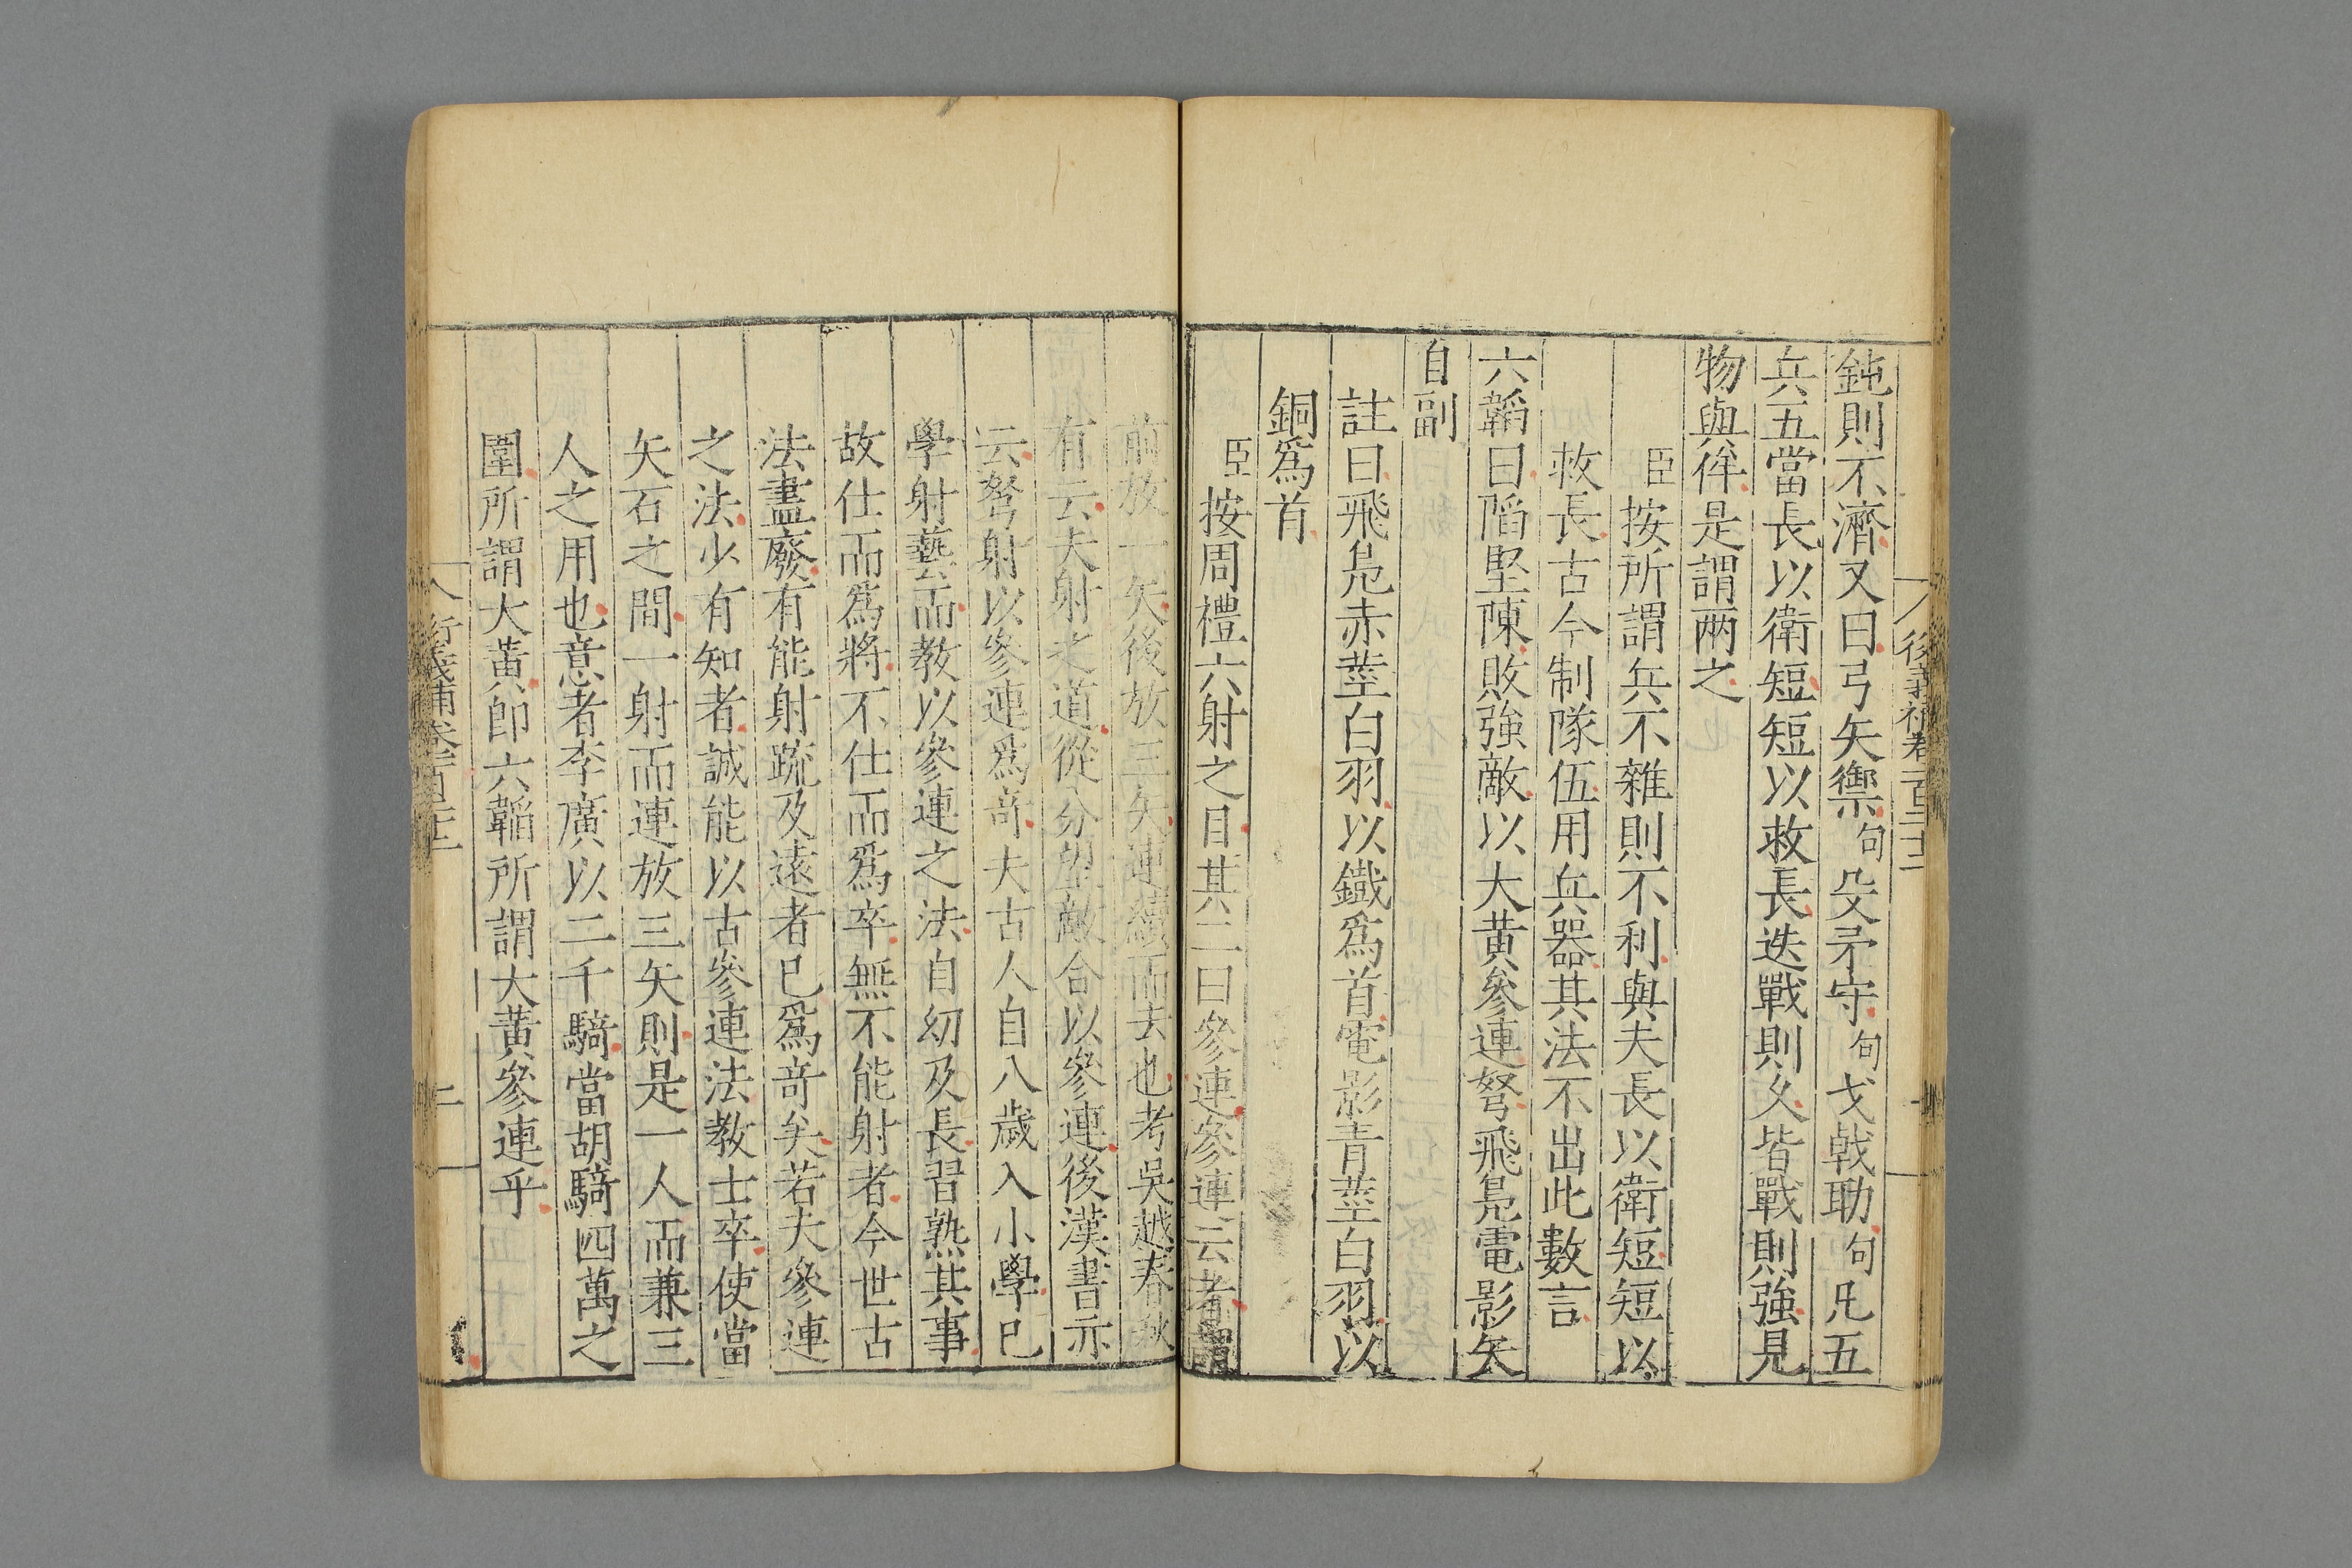 後義補卷一百二十二
鈍則不濟又曰弓矢禦句殳矛守句戈戟助句凡五
兵五當長以衛短短以救長迭戰則久皆戰則強見
物與侔是謂兩之
臣按所謂兵不雜則不利與夫長以衛短短以
救長古今制隊伍用兵器其法不出此數言
六韜曰陷堅陳敗強敵以大黃參連弩飛鳧電影矢
自副
註曰飛鳧赤莖白羽以鐵爲首電影青莖白羽以
銅爲首
臣按周禮六射之目其二曰參連參連云者謂
前放一矢後放三矢連續而去也考吳越春秋
有云夫射之道從分望敵合以參連後漢書亦
云弩射以參連爲奇夫古人自八歲入小學已
學射藝而教以參連之法自幼及長習熟其事
故仕而爲將不仕而爲卒無不能射者今世古
法盡廢有能射疏及遠者已爲奇矣若夫參連
之法少有知者誠能以古參連法教士卒使當
矢石之間一射而連放三矢則是一人而兼三
人之用也意者李廣以二千騎當胡騎四萬之
圍所謂大黃即六韜所謂大黃參連乎
衍義補卷一百二十二